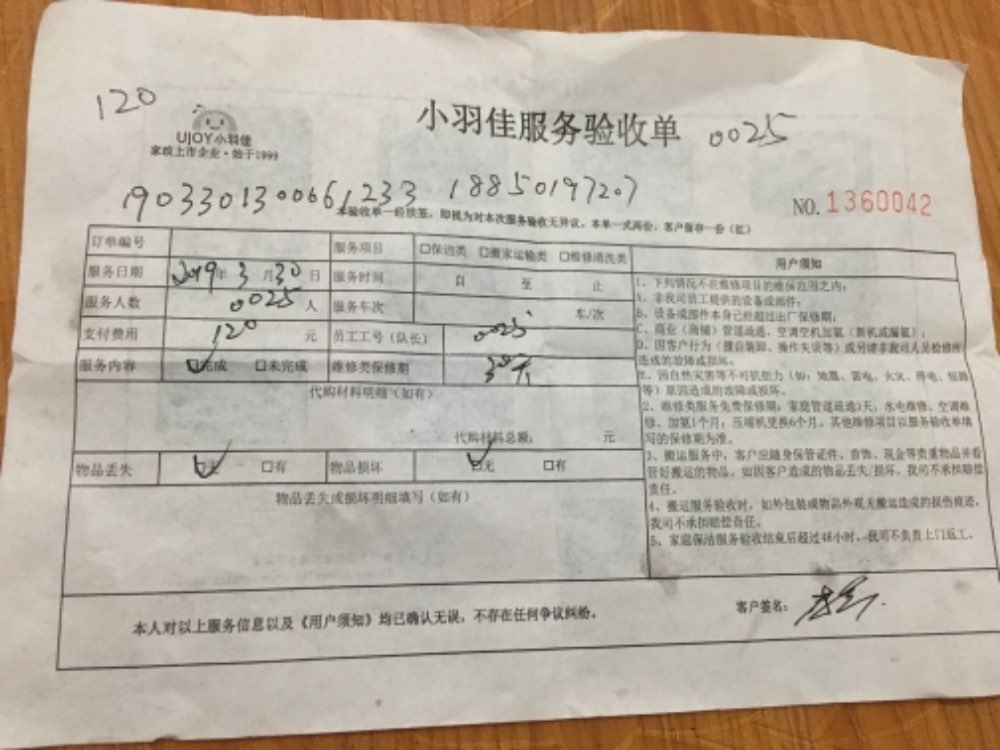 120
UJOY小羽佳
家政上市企业·始于1999
小羽佳服务验收单 0025
1903301300661233 18850197207
本验收单一经核签，即视为对本次服务验收无异议。本单一式两份，客户留存一份（红）
NO.1360042
订单编号 服务项目 □保洁类 □搬家运输类 □维修清洗类
服务日期 2019年3月30日 服务时间 自 至 止
服务人数 0025人 服务车次 车/次
支付费用 120元 员工工号（队长） 0025
服务内容 ☑完成 □未完成 维修类保修期 30天
代购材料明细（如有）
代购材料总额： 元
物品丢失 ☑无 □有 物品损坏 ☑无 □有
物品丢失或损坏明细填写（如有）
用户须知
1、下列情况不在维修项目的维保范围之内：
A、非我司员工提供的设备或部件；
B、设备或部件本身已经超过出厂保修期；
C、商业（商铺）管道疏通，空调空机加氨（新机或漏氨）；
D、因客户行为（擅自装卸、操作失误等）或另请非我司人员检修所
造成的故障或损坏。
E、因自然灾害等不可抗能力（如：地震、雷电、火灾、停电、短路
等）原因造成的故障或损坏。
2、维修类服务免费保修期：家庭管道疏通3天，水电维修、空调维
修、加氨1个月；压缩机更换6个月。其他维修项目以服务验收单填
写的保修期为准。
3、搬运服务中，客户应随身保管证件、首饰、现金等贵重物品并看
管好搬运的物品，如因客户造成的物品丢失/损坏，我司不承担赔偿
责任。
4、搬运服务验收时，如外包装或物品外观无搬运造成的损伤痕迹，
我司不承担赔偿责任。
5、家庭保洁服务验收结束后超过48小时，我司不负责上门返工。
本人对以上服务信息以及《用户须知》均已确认无误，不存在任何争议纠纷。
客户签名：